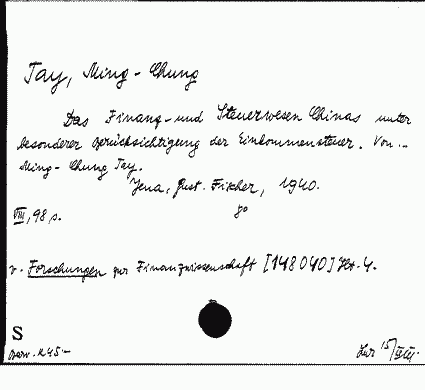 Tay, Ming-Chung
Das Finanz- und Steuerwesen Chinas unter
besonderer Berücksichtigung der Einkommensteuer. Von ..
Ming-Chung Tay.
Jena, Gust. Fischer, 1940.
8o
VIII, 98 s.
v. Forschungen zur Finanzwissenschaft [148040] Hft. 4.
S
15/VIII